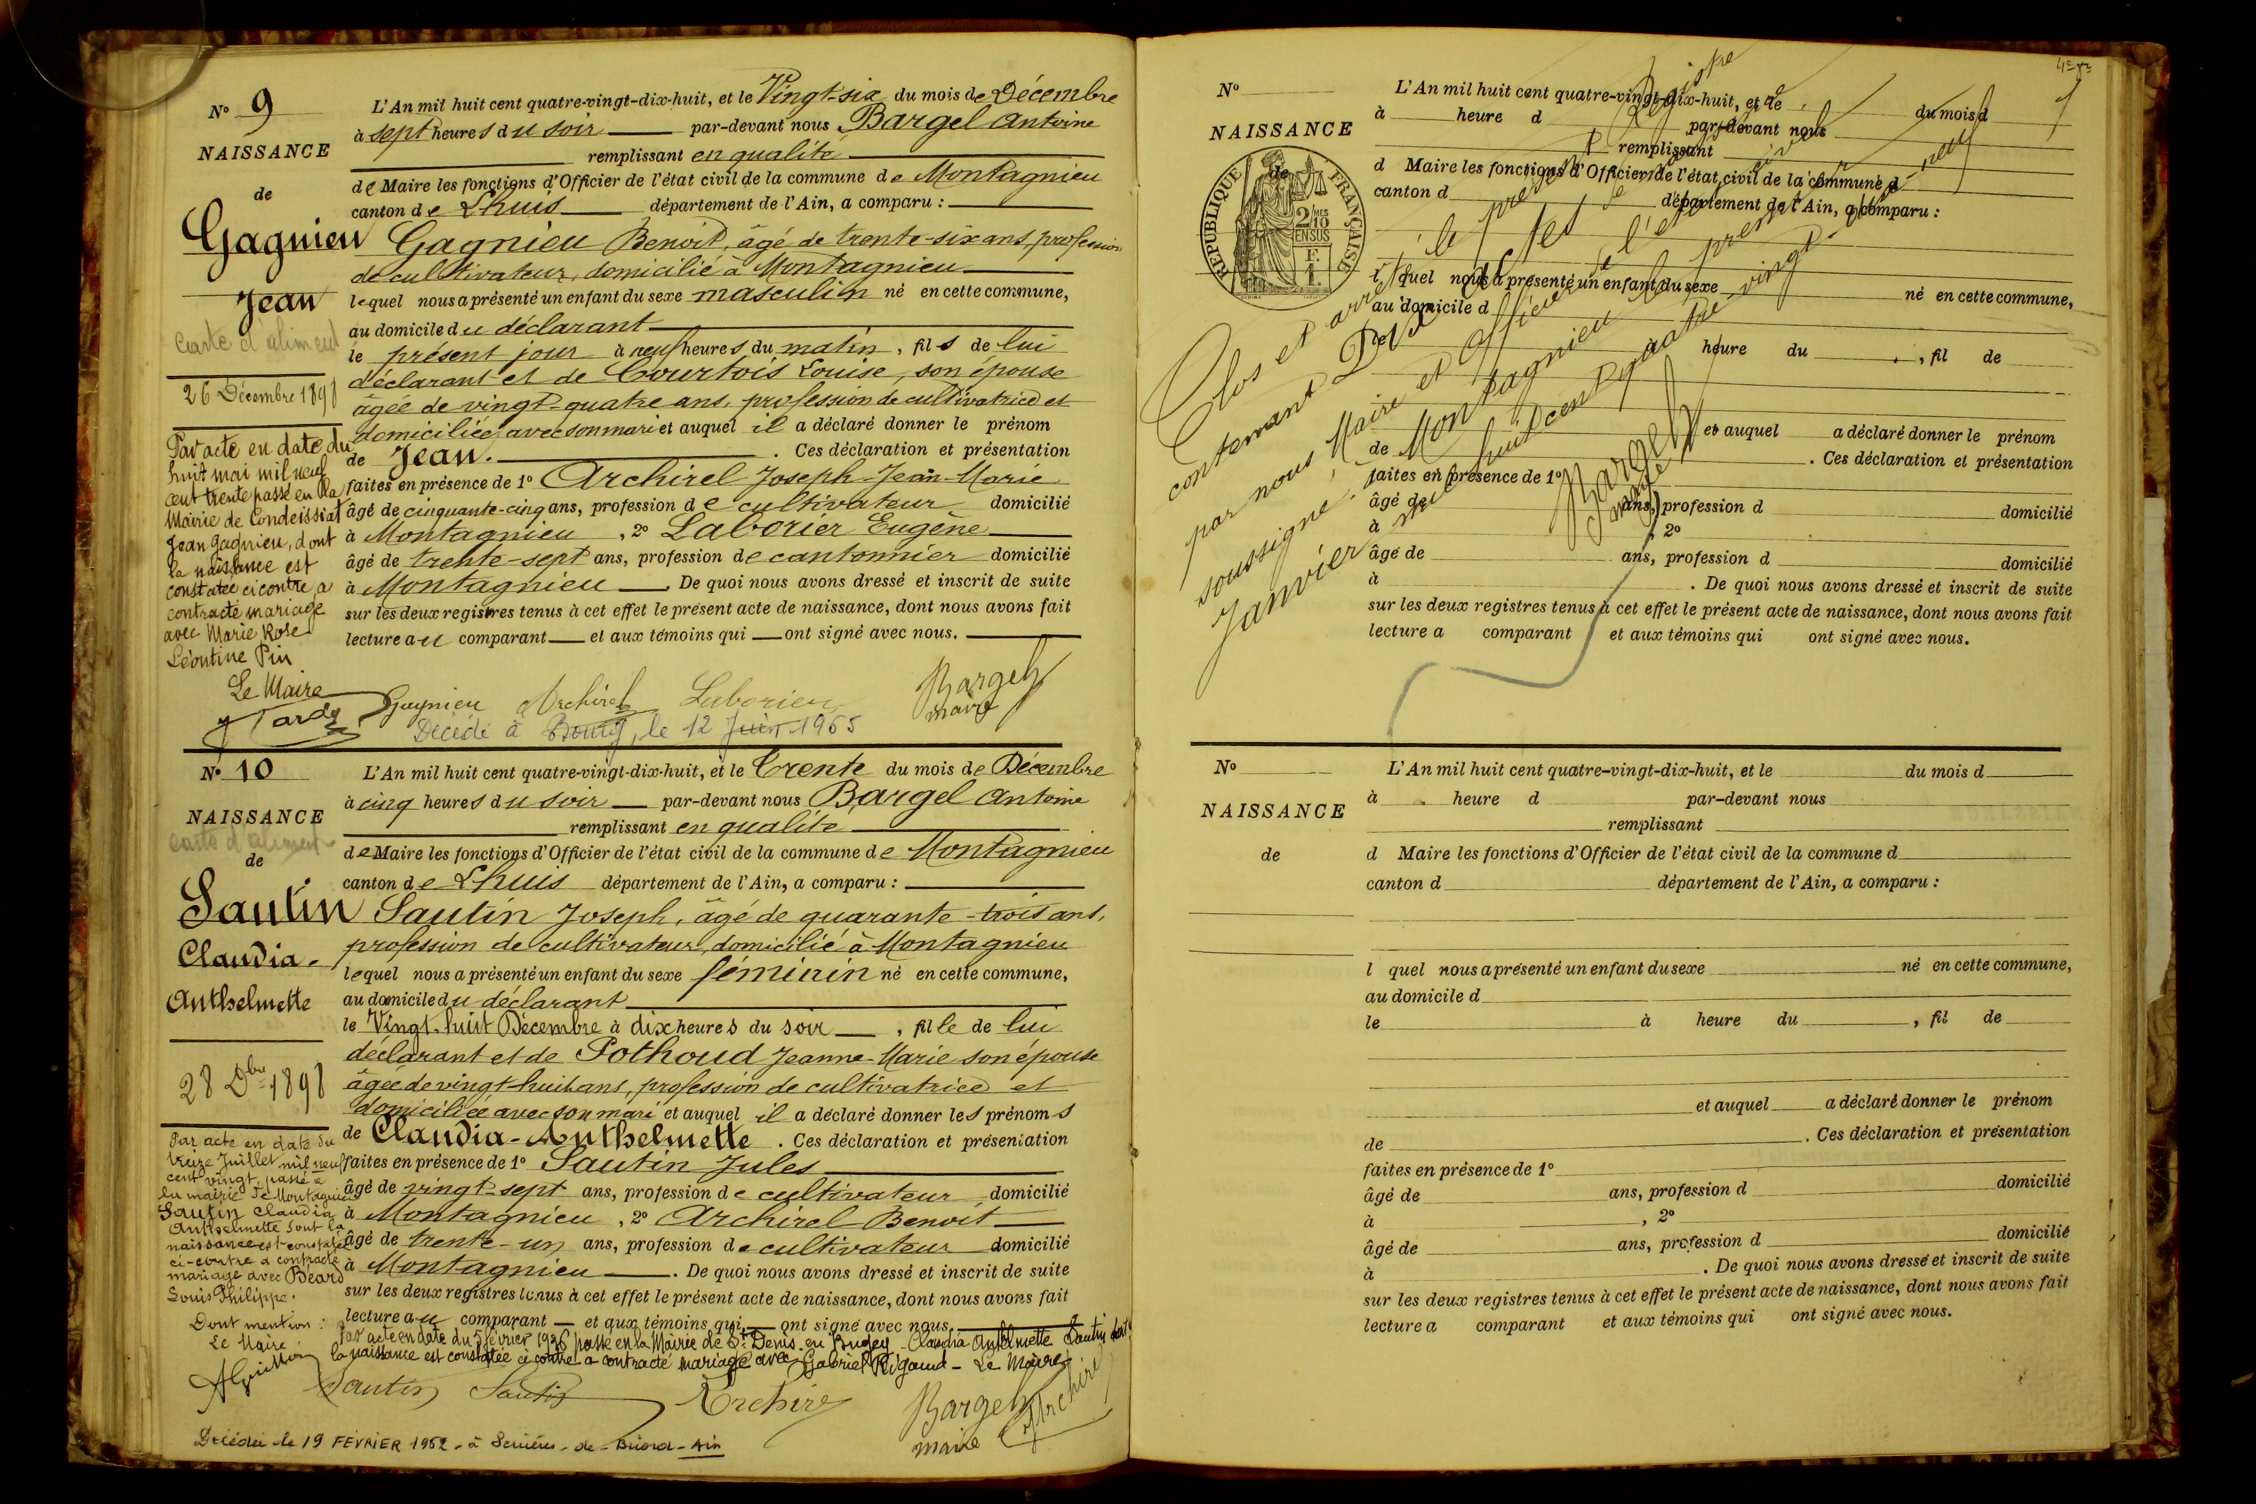 N° 9
NAISSANCE
de
Gagnieu
Jean
Carte d'aliment
26 Décembre 1898
Par acte en date du
huit mai mil neuf
cent trente passé en la
Mairie de Condeissiat
Jean Gagnieu, dont
la naissance est
constatée ci contre, a
contracté mariage
avec Marie Rose
Léontine Pin
Le Maire
Tardy
L'An mil huit cent quatre-vingt-dix-huit, et le Vingt-six du mois de Décembre
à sept heures du soir par-devant nous Bargel Antoine
remplissant en qualité
de Maire les fonctions d'Officier de l'état civil de la commune de Montagnieu
canton de Lhuis département de l'Ain, a comparu :
Gagnieu Benoit, âgé de trente-six ans, profession
de cultivateur, domicilié à Montagnieu
lequel nous a présenté un enfant du sexe masculin né en cette commune,
au domicile du déclarant
le présent jour à neuf heures du matin, fils de lui
déclarant et de Courtois Louise, son épouse
âgée de vingt-quatre ans, profession de cultivatrice et
domiciliée avec son mari et auquel il a déclaré donner le prénom
de Jean. . Ces déclaration et présentation
faites en présence de 1° Archirel Joseph-Jean-Marie
âgé de cinquante-cinq ans, profession de cultivateur domicilié
à Montagnieu , 2° Laborier Eugène
âgé de trente-sept ans, profession de cantonnier domicilié
à Montagnieu . De quoi nous avons dressé et inscrit de suite
sur les deux registres tenus à cet effet le présent acte de naissance, dont nous avons fait
lecture au comparant et aux témoins qui ont signé avec nous.
Gagnieu Archirel Laborier Bargel
maire
Décédé à Bourg, le 12 Juin 1965
N° 10
NAISSANCE
Carte d'aliment
de
Sautin
Claudia-
Anthelmette
28 Dbre 1898
Par acte en date du
treize Juillet mil neuf
cent vingt, passé à
la mairie de Montagnieu
Sautin Claudia
Anthelmette dont la
naissance est constatée
ci-contre a contracté
mariage avec Béard
Louis Philippe.
Dont mention :
Le Maire
L'An mil huit cent quatre-vingt-dix-huit, et le Trente du mois de Décembre
à cinq heures du soir par-devant nous Bargel Antoine
remplissant en qualité
de Maire les fonctions d'Officier de l'état civil de la commune de Montagnieu
canton de Lhuis département de l'Ain, a comparu :
Sautin Joseph, âgé de quarante-trois ans,
profession de cultivateur, domicilié à Montagnieu
lequel nous a présenté un enfant du sexe féminin né en cette commune,
au domicile du déclarant
le Vingt-huit Décembre à dix heures du soir , fille de lui
déclarant et de Pothoud Jeanne-Marie son épouse
âgée de vingt-huit ans, profession de cultivatrice et
domiciliée avec son mari et auquel il a déclaré donner les prénoms
de Claudia-Anthelmette . Ces déclaration et présentation
faites en présence de 1° Sautin Jules
âgé de vingt-sept ans, profession de cultivateur domicilié
à Montagnieu , 2° Archirel Benoit
âgé de trente-un ans, profession de cultivateur domicilié
à Montagnieu . De quoi nous avons dressé et inscrit de suite
sur les deux registres tenus à cet effet le présent acte de naissance, dont nous avons fait
lecture au comparant et aux témoins qui ont signé avec nous.
Par acte en date du 5 février 1936 passé en la Mairie de St Denis en Bugey Claudia Anthelmette Sautin dont
la naissance est constatée ci contre a contracté mariage avec Gabriel Rigaud - Le Maire
Sautin Sautin Archirel Bargel
maire Archirel
Décédée le 19 FÉVRIER 1962 - à Serrières-de-Briord-Ain
N°
NAISSANCE
de
RÉPUBLIQUE FRANÇAISE
2/10 MES
EN SUS
F.
1.
L'An mil huit cent quatre-vingt-dix-huit, et le du mois d
à heure d par-devant nous
remplissant
d Maire les fonctions d'Officier de l'état civil de la commune d
canton d département de l'Ain, a comparu :
l quel nous a présenté un enfant du sexe né en cette commune,
au domicile d
le à heure du , fil de
et auquel a déclaré donner le prénom
de . Ces déclaration et présentation
faites en présence de 1°
âgé de ans, profession d domicilié
à , 2°
âgé de ans, profession d domicilié
à . De quoi nous avons dressé et inscrit de suite
sur les deux registres tenus à cet effet le présent acte de naissance, dont nous avons fait
lecture a comparant et aux témoins qui ont signé avec nous.
Clos et arrêté le présent Registre
contenant Dix actes de naissance
par nous Maire et Officier de l'état civil
soussigné, à Montagnieu le premier
Janvier mil huit cent quatre-vingt-dix-neuf
Bargel
maire
N°
NAISSANCE
de
L'An mil huit cent quatre-vingt-dix-huit, et le du mois d
à heure d par-devant nous
remplissant
d Maire les fonctions d'Officier de l'état civil de la commune d
canton d département de l'Ain, a comparu :
l quel nous a présenté un enfant du sexe né en cette commune,
au domicile d
le à heure du , fil de
et auquel a déclaré donner le prénom
de . Ces déclaration et présentation
faites en présence de 1°
âgé de ans, profession d domicilié
à , 2°
âgé de ans, profession d domicilié
à . De quoi nous avons dressé et inscrit de suite
sur les deux registres tenus à cet effet le présent acte de naissance, dont nous avons fait
lecture a comparant et aux témoins qui ont signé avec nous.